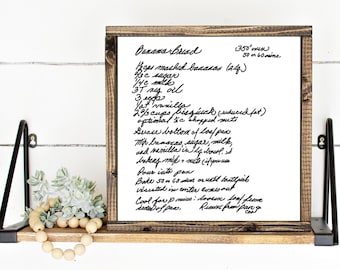 Banana Bread (350° oven
50 or 60 mins.
1½ cups mashed bananas (2 lg.)
⅔ c sugar
¼ c milk
3 T veg oil
3 eggs
½ t vanilla
2⅔ cups bisquick (reduced fat)
optional ½ c chopped nuts
Grease bottom of loaf pan
Mix bananas, sugar, milk,
and vanilla in lg bowl.
bisquick + nuts
Pour into pan
Bake 50 or 60 min or until toothpick
inserted in center comes out
Cool for 10 mins: loosen loaf from
sides of pan. Remove from pan
cool